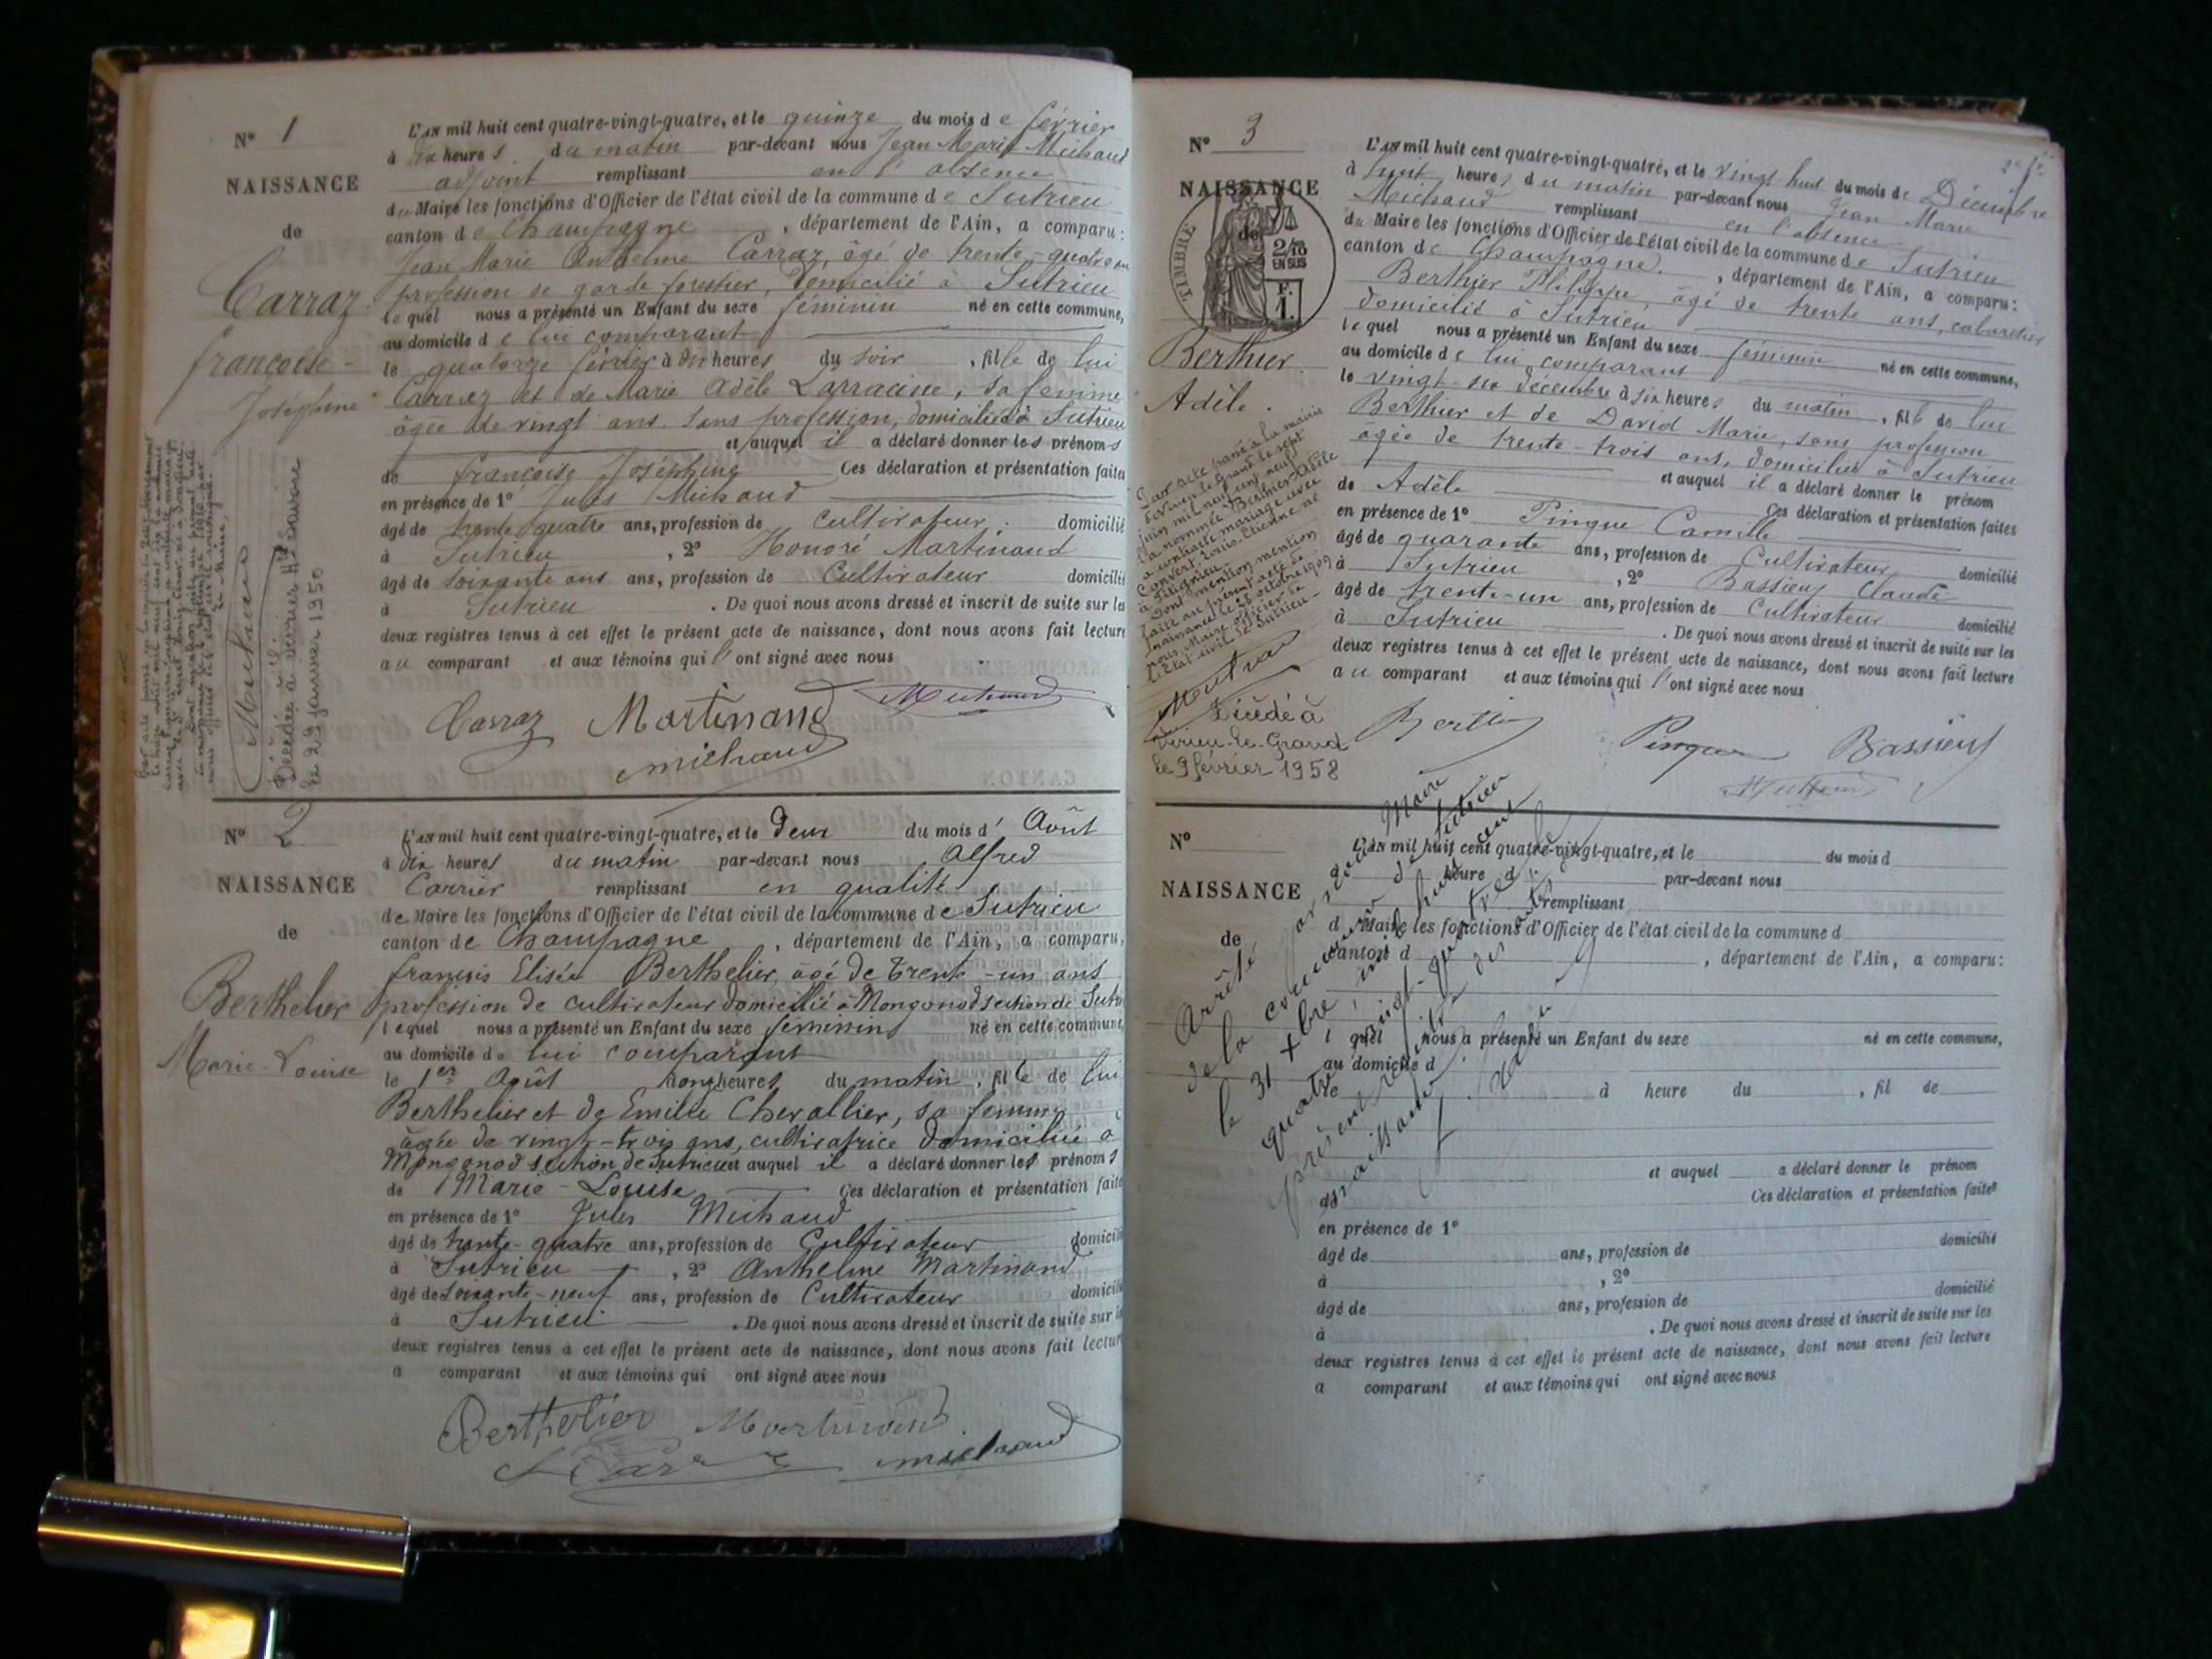 N° 1
NAISSANCE
de
Carraz
françoise -
Joséphine
L'AN mil huit cent quatre-vingt-quatre, et le quinze du mois de février
à dix heures du matin par-devant nous Jean Marie Michaud
adjoint remplissant en l'absence
du Maire les fonctions d'Officier de l'état civil de la commune de Sutrieu
canton de Champagne, département de l'Ain, a comparu :
Jean Marie Anthelme Carraz, âgé de trente-quatre ans
profession de garde forestier, domicilié à Sutrieu
lequel nous a présenté un Enfant du sexe féminin né en cette commune,
au domicile de lui comparant
le quatorze février à dix heures du soir, fille de lui
Carraz et de Marie Adèle Larracine, sa femme
âgée de vingt ans, sans profession, domiciliée à Sutrieu
et auquel il a déclaré donner les prénoms
de françoise Joséphine Ces déclaration et présentation faites
en présence de 1° Jules Michaud
âgé de trente quatre ans, profession de Cultivateur domicilié
à Sutrieu, 2° Honoré Martinand
âgé de soixante ans ans, profession de Cultivateur domicilié
à Sutrieu. De quoi nous avons dressé et inscrit de suite sur les
deux registres tenus à cet effet le présent acte de naissance, dont nous avons fait lecture
au comparant et aux témoins qui l'ont signé avec nous
Carraz Martinand Michaud
michaud
Michaud
Décédée à
le 29 janvier 1950
N° 2
NAISSANCE
de
Berthelier
Marie-Louise
L'AN mil huit cent quatre-vingt-quatre, et le Deux du mois d' Août
à dix heures du matin par-devant nous Alfred
Carrier remplissant en qualité
de Maire les fonctions d'Officier de l'état civil de la commune de Sutrieu
canton de Champagne, département de l'Ain, a comparu,
françois Elisée Berthelier, âgé de trente-un ans
profession de cultivateur domicilié à Mongonod section de Sutrieu
lequel nous a présenté un Enfant du sexe féminin né en cette commune,
au domicile de lui comparant
le 1er Août heures du matin, fille de lui
Berthelier et de Emilie Chevallier, sa femme
âgée de vingt-trois ans, cultivatrice domiciliée à
Mongonod section de Sutrieu et auquel il a déclaré donner les prénoms
de Marie-Louise Ces déclaration et présentation faites
en présence de 1° Jules Michaud
âgé de trente-quatre ans, profession de Cultivateur domicilié
à Sutrieu, 2° Anthelme Martinand
âgé de soixante-neuf ans, profession de Cultivateur domicilié
à Sutrieu. De quoi nous avons dressé et inscrit de suite sur les
deux registres tenus à cet effet le présent acte de naissance, dont nous avons fait lecture
a comparant et aux témoins qui ont signé avec nous
Berthelier Martinand
michaud
N° 3
NAISSANCE
de
TIMBRE
2/10
EN SUS
F.
1.
Berthier
Adèle.
L'AN mil huit cent quatre-vingt-quatre, et le vingt huit du mois de Décembre
à huit heures du matin par-devant nous Jean Marie
Michaud remplissant en l'absence
du Maire les fonctions d'Officier de l'état civil de la commune de Sutrieu
canton de Champagne, département de l'Ain, a comparu :
Berthier Philippe, âgé de trente ans, cabaretier
domicilié à Sutrieu
lequel nous a présenté un Enfant du sexe féminin né en cette commune,
au domicile de lui comparant
le vingt-six décembre à six heures du matin, fille de lui
Berthier et de David Marie, sans profession
âgée de trente-trois ans, domiciliée à Sutrieu
et auquel il a déclaré donner le prénom
de Adèle Ces déclaration et présentation faites
en présence de 1° Pingue Camille
âgé de quarante ans, profession de Cultivateur domicilié
à Sutrieu, 2° Bassieux Claude
âgé de trente-un ans, profession de Cultivateur domicilié
à Sutrieu. De quoi nous avons dressé et inscrit de suite sur les
deux registres tenus à cet effet le présent acte de naissance, dont nous avons fait lecture
au comparant et aux témoins qui l'ont signé avec nous
Berthier Pingue Bassieux
Par acte passé à la mairie
de Virieu-le-Grand le sept
juin mil neuf cent neuf
la nommée Berthier Adèle
a contracté mariage avec
Convert Louis Etienne né
à
Dont mention
faite au présent acte de
naissance le 25 octobre 1909
par nous Maire officier de
l'état civil de Sutrieu -
Décédé à
Virieu-le-Grand
le 9 février 1958
N°
NAISSANCE
de
L'AN mil huit cent quatre-vingt-quatre, et le du mois d
à heure d par-devant nous
remplissant
d Maire les fonctions d'Officier de l'état civil de la commune d
canton d, département de l'Ain, a comparu :
l quel nous a présenté un Enfant du sexe né en cette commune,
au domicile d
le à heure du, fil de
et auquel a déclaré donner le prénom
de Ces déclaration et présentation faites
en présence de 1°
âgé de ans, profession de domicilié
à, 2°
âgé de ans, profession de domicilié
à. De quoi nous avons dressé et inscrit de suite sur les
deux registres tenus à cet effet le présent acte de naissance, dont nous avons fait lecture
a comparant et aux témoins qui ont signé avec nous
Arrêté par nous Maire
de la commune de Sutrieu
le 31 Xbre mil huit cent
quatre-vingt-quatre le
présent registre des actes de
naissance